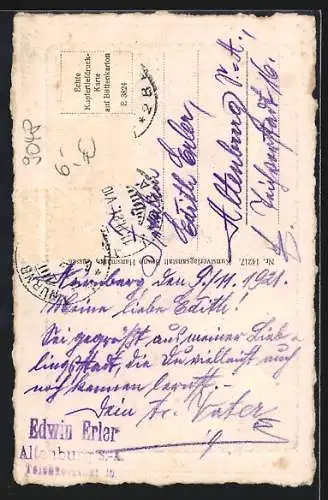 Echte
Kupfertiefdruck-
Karte
auf Büttenkarton
E. 3824
9048
6,- €
Fräulein
Edith Erler,
Altenburg S.-A.
16.
Nr. 14217. Kunstverlagsanstalt Bruno Hansmann, Cassel.
Nürnberg d. 9./11. 1921.
Meine liebe Edith!
Sei gegrüßt aus meiner Lieb-
lingsstadt, die Du vielleicht auch
noch kennen lernst. -
Dein tr. Vater
Edwin Erler
Altenburg S.-A.